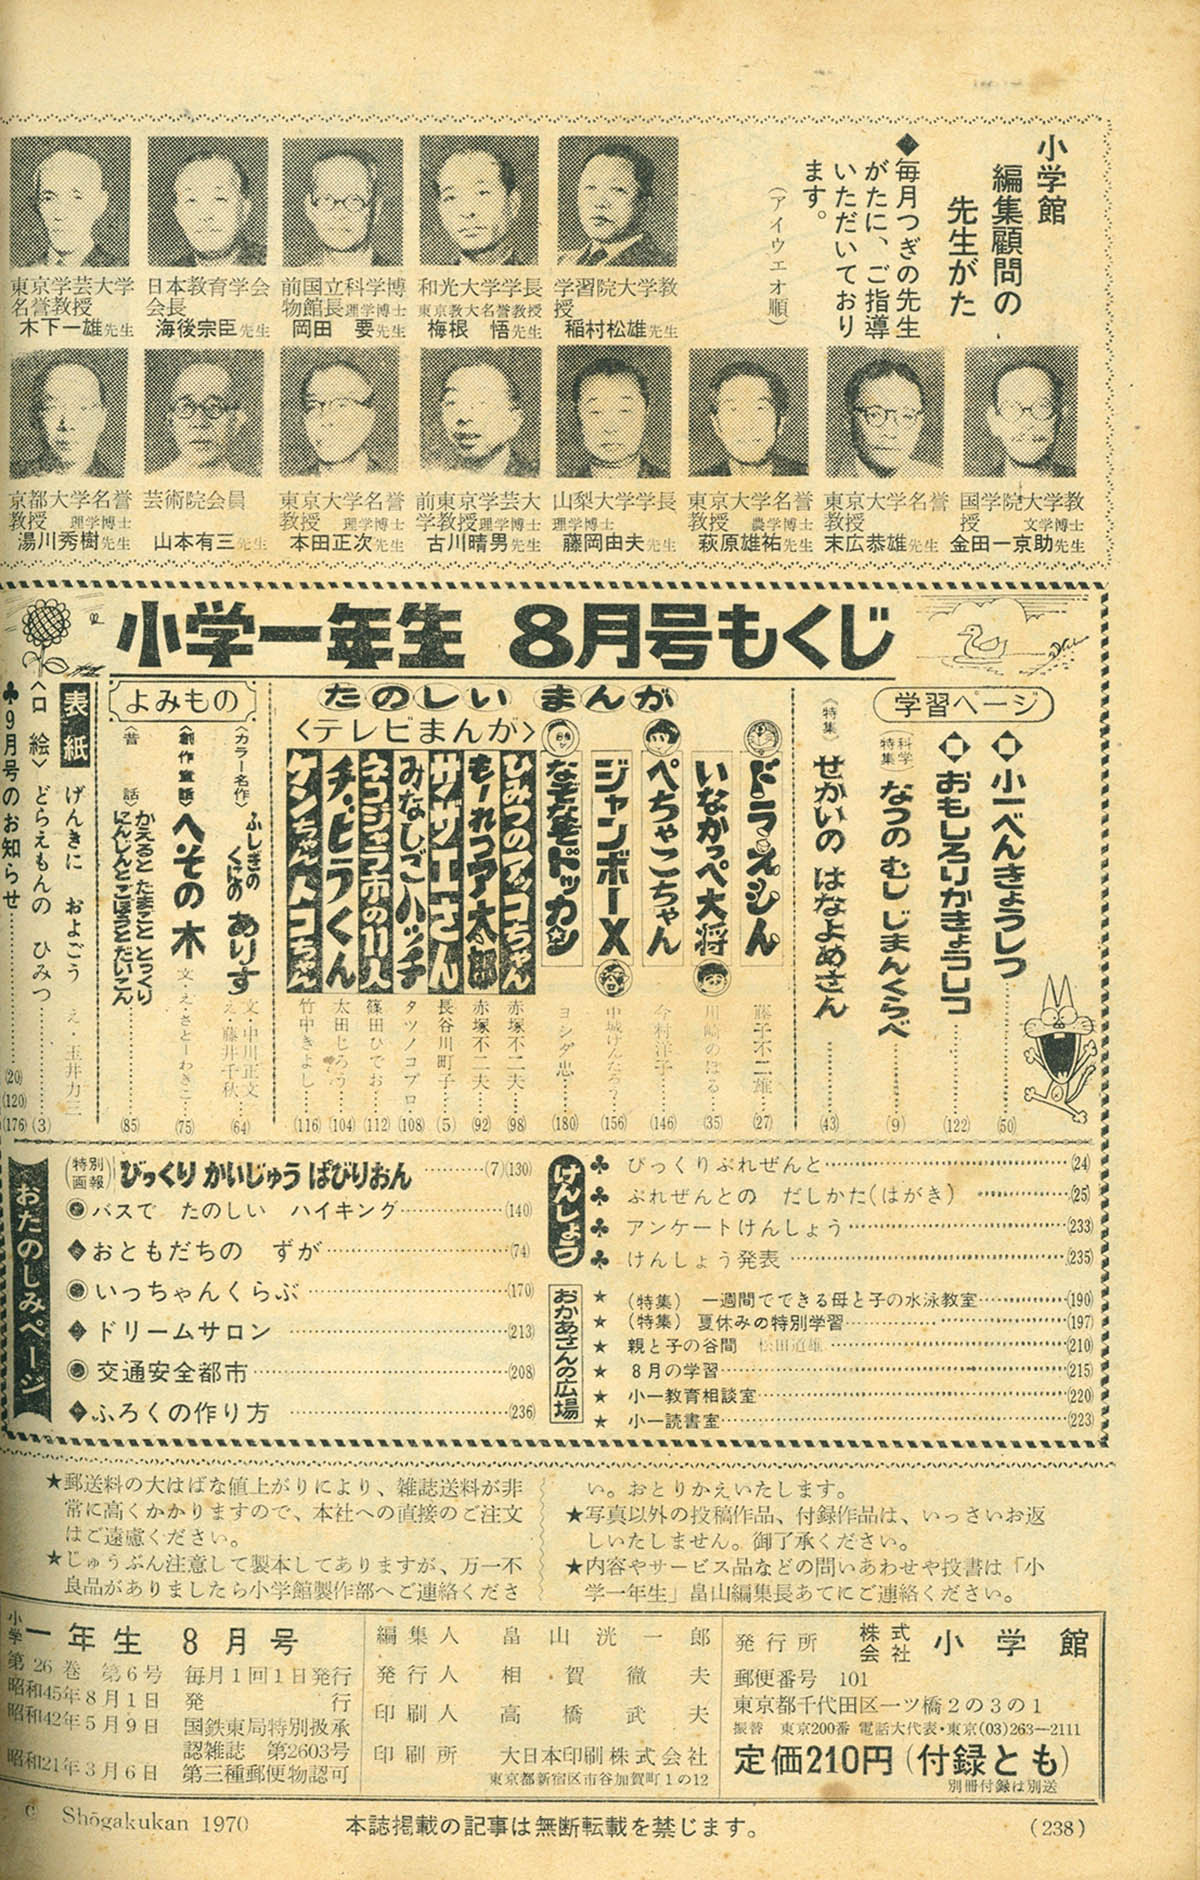 小学館
編集顧問の
先生がた
◆毎月つぎの先生
がたに、ご指導
いただいており
ます。
(アイウエオ順)
学習院大学教
授
稲村松雄先生
和光大学学長
東京教大名誉教授
梅根 悟先生
前国立科学博
物館長理学博士
岡田 要先生
日本教育学会
会長
海後宗臣先生
東京学芸大学
名誉教授
木下一雄先生
国学院大学教
授 文学博士
金田一京助先生
東京大学名誉
教授
末広恭雄先生
東京大学名誉
教授 農学博士
萩原雄祐先生
山梨大学学長
理学博士
藤岡由夫先生
前東京学芸大
学教授理学博士
古川晴男先生
東京大学名誉
教授 理学博士
本田正次先生
芸術院会員
山本有三先生
京都大学名誉
教授 理学博士
湯川秀樹先生
小学一年生 8月号もくじ
学習ページ
小一べんきょうしつ (50)
おもしろりかきょうしつ (122)
(科学特集) なつの むし じまんくらべ (9)
(特集) せかいの はなよめさん (43)
たのしい まんが
ドラえもん 藤子不二雄 (27)
いなかっぺ大将 川崎のぼる (35)
ぺちゃこちゃん 今村洋子 (146)
ジャンボーX 中城けんたろう (156)
なぞなぞドッカン ヨシダ忠 (180)
<テレビまんが>
ひみつのアッコちゃん 赤塚不二夫 (98)
もーれつア太郎 赤塚不二夫 (92)
サザエさん 長谷川町子 (5)
みなしごハッチ タツノコプロ (108)
ネコジャラ市の11人 篠田ひでお (112)
チビラくん 太田じろう (104)
ケンちゃんトコちゃん 竹中きよし (116)
よみもの
<カラー名作> ふしぎの くにの ありす 文・中川正文 え・藤井千秋 (64)
<創作童話> へその木 文・え・さとーわきこ (75)
<昔話> かえると たまごと とっくり
にんじんと ごぼうと だいこん (85)
表紙 げんきに およごう え・玉井力三
<口絵> どらえもんの ひみつ (3)
♣9月号のお知らせ (20)(120)(176)
おたのしみページ
(特別画報) びっくり かいじゅう ぱびりおん (7)(130)
◉バスで たのしい ハイキング (140)
◆おともだちの ずが (74)
◉いっちゃんくらぶ (170)
◆ドリームサロン (213)
◉交通安全都市 (208)
◆ふろくの作り方 (236)
けんしょう
♣ びっくりぷれぜんと (24)
♣ ぷれぜんとの だしかた(はがき) (25)
♣ アンケートけんしょう (233)
♣ けんしょう発表 (235)
おかあさんの広場
★ (特集) 一週間でできる母と子の水泳教室 (190)
★ (特集) 夏休みの特別学習 (197)
★ 親と子の谷間 松田道雄 (210)
★ 8月の学習 (215)
★ 小一教育相談室 (220)
★ 小一読書室 (223)
★郵送料の大はばな値上がりにより、雑誌送料が非
常に高くかかりますので、本社への直接のご注文
はご遠慮ください。
★じゅうぶん注意して製本してありますが、万一不
良品がありましたら小学館製作部へご連絡くださ
い。おとりかえいたします。
★写真以外の投稿作品、付録作品は、いっさいお返
しいたしません。御了承ください。
★内容やサービス品などの問いあわせや投書は「小
学一年生」畠山編集長あてにご連絡ください。
小学一年生 8月号
第26巻 第6号 毎月1回1日発行
昭和45年8月1日 発行
昭和42年5月9日 国鉄東局特別扱承
認雑誌 第2603号
昭和21年3月6日 第三種郵便物認可
編集人 畠山滉一郎
発行人 相賀徹夫
印刷人 高橋武夫
印刷所 大日本印刷株式会社
東京都新宿区市谷加賀町1の12
発行所 株式会社 小学館
郵便番号 101
東京都千代田区一ツ橋2の3の1
振替 東京200番 電話大代表・東京(03)263-2111
定価210円(付録とも)
別冊付録は別送
© Shōgakukan 1970
本誌掲載の記事は無断転載を禁じます。
(238)